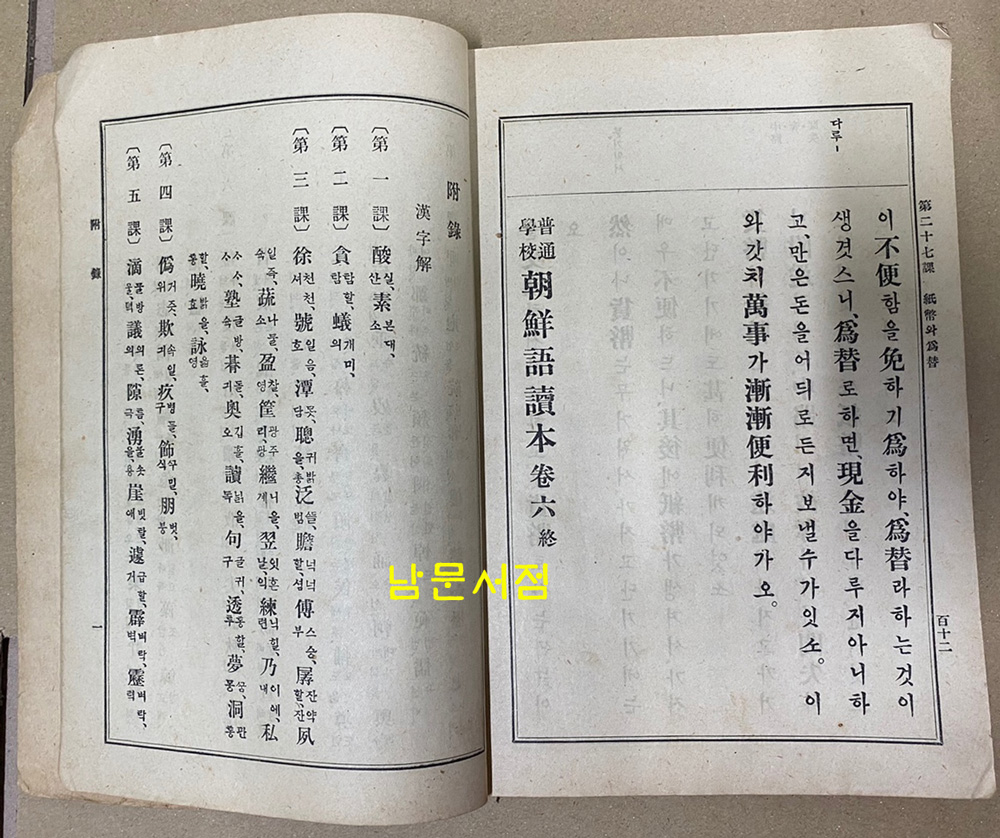 第二十七課 紙幣와爲替
百十二
다루ー
이不便함을免하기爲하야、爲替라하는것이
생겻스니、爲替로하면、現金을다루지아니하
고、만은돈을어듸로든지보낼수가잇소。이
와갓치萬事가漸漸便利하야가오。
普通學校 朝鮮語讀本卷六 終
附錄
漢字解
〔第一課〕 酸 실、산 素 본대、소
〔第二課〕 貪 탐할、탐 蟻 개미、의
〔第三課〕 徐 천천、서 號 일음、호 潭 못、담 聰 귀밝을、총 泛 뜰、범 贍 넉넉할、섬 傅 스승、부 孱 잔약할、잔 夙
일즉、숙 蔬 나물、소 盈 찰、영 筐 광주리、광 繼 니을、계 翌 잇흔날、익 練 닉힐、련 乃 이에、내 私
사사、사 塾 글방、숙 碁 돌、긔 奧 깁흘、오 讀 낡을、독 句 글귀、구 透 통할、투 夢 꿈、몽 洞 관통
할、통 曉 밝을、효 詠 읇흘、영
〔第四課〕 僞 거즛、위 欺 속일、긔 疚 병들、구 飾 꾸밀、식 朋 벗、붕
〔第五課〕 滴 물방울、덕 議 의론、의 隙 틈、극 湧 물솟을、용 崖 빗탈、애 遽 급할、거 霹 벼락、벽 靂 벼락、력
附錄
一
남문서점